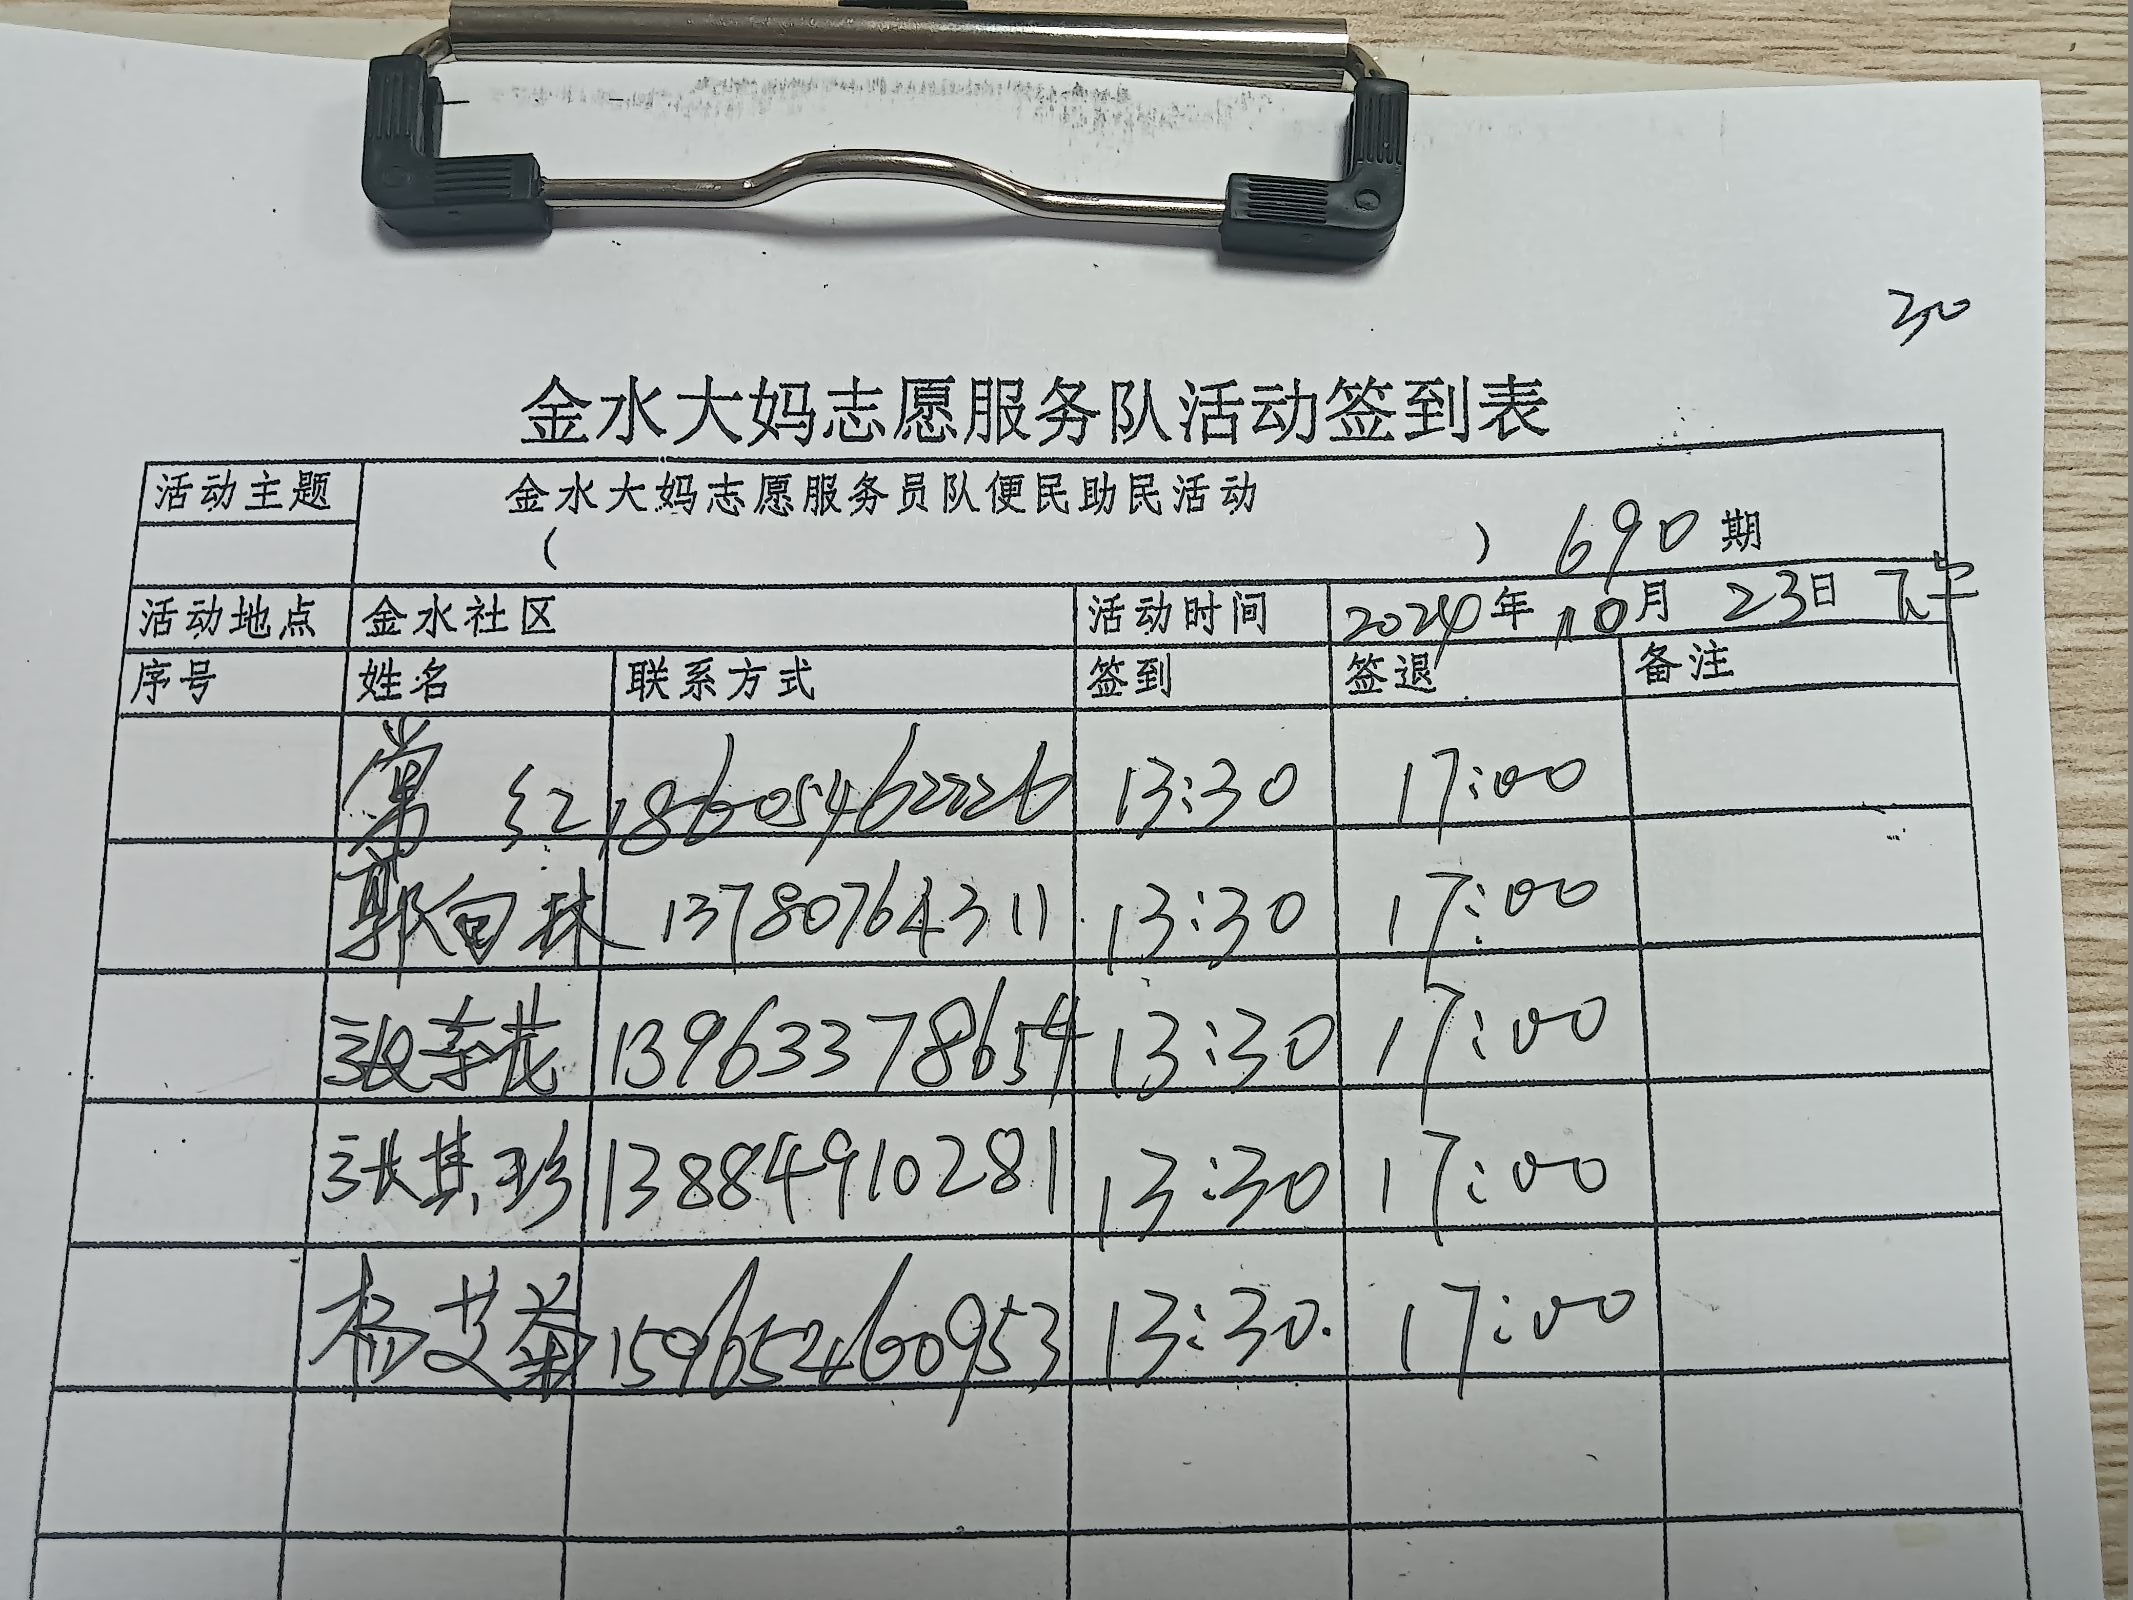 30
金水大妈志愿服务队活动签到表
活动主题 金水大妈志愿服务员队便民助民活动
( ) 690期
活动地点 金水社区 活动时间 2024年10月23日 下午
序号 姓名 联系方式 签到 签退 备注
红 18605462226 13:30 17:00
郭向林 13780764311 13:30 17:00
13963378654 13:30 17:00
张其珍 13884910281 13:30 17:00
杨艾菊 15965460953 13:30 17:00